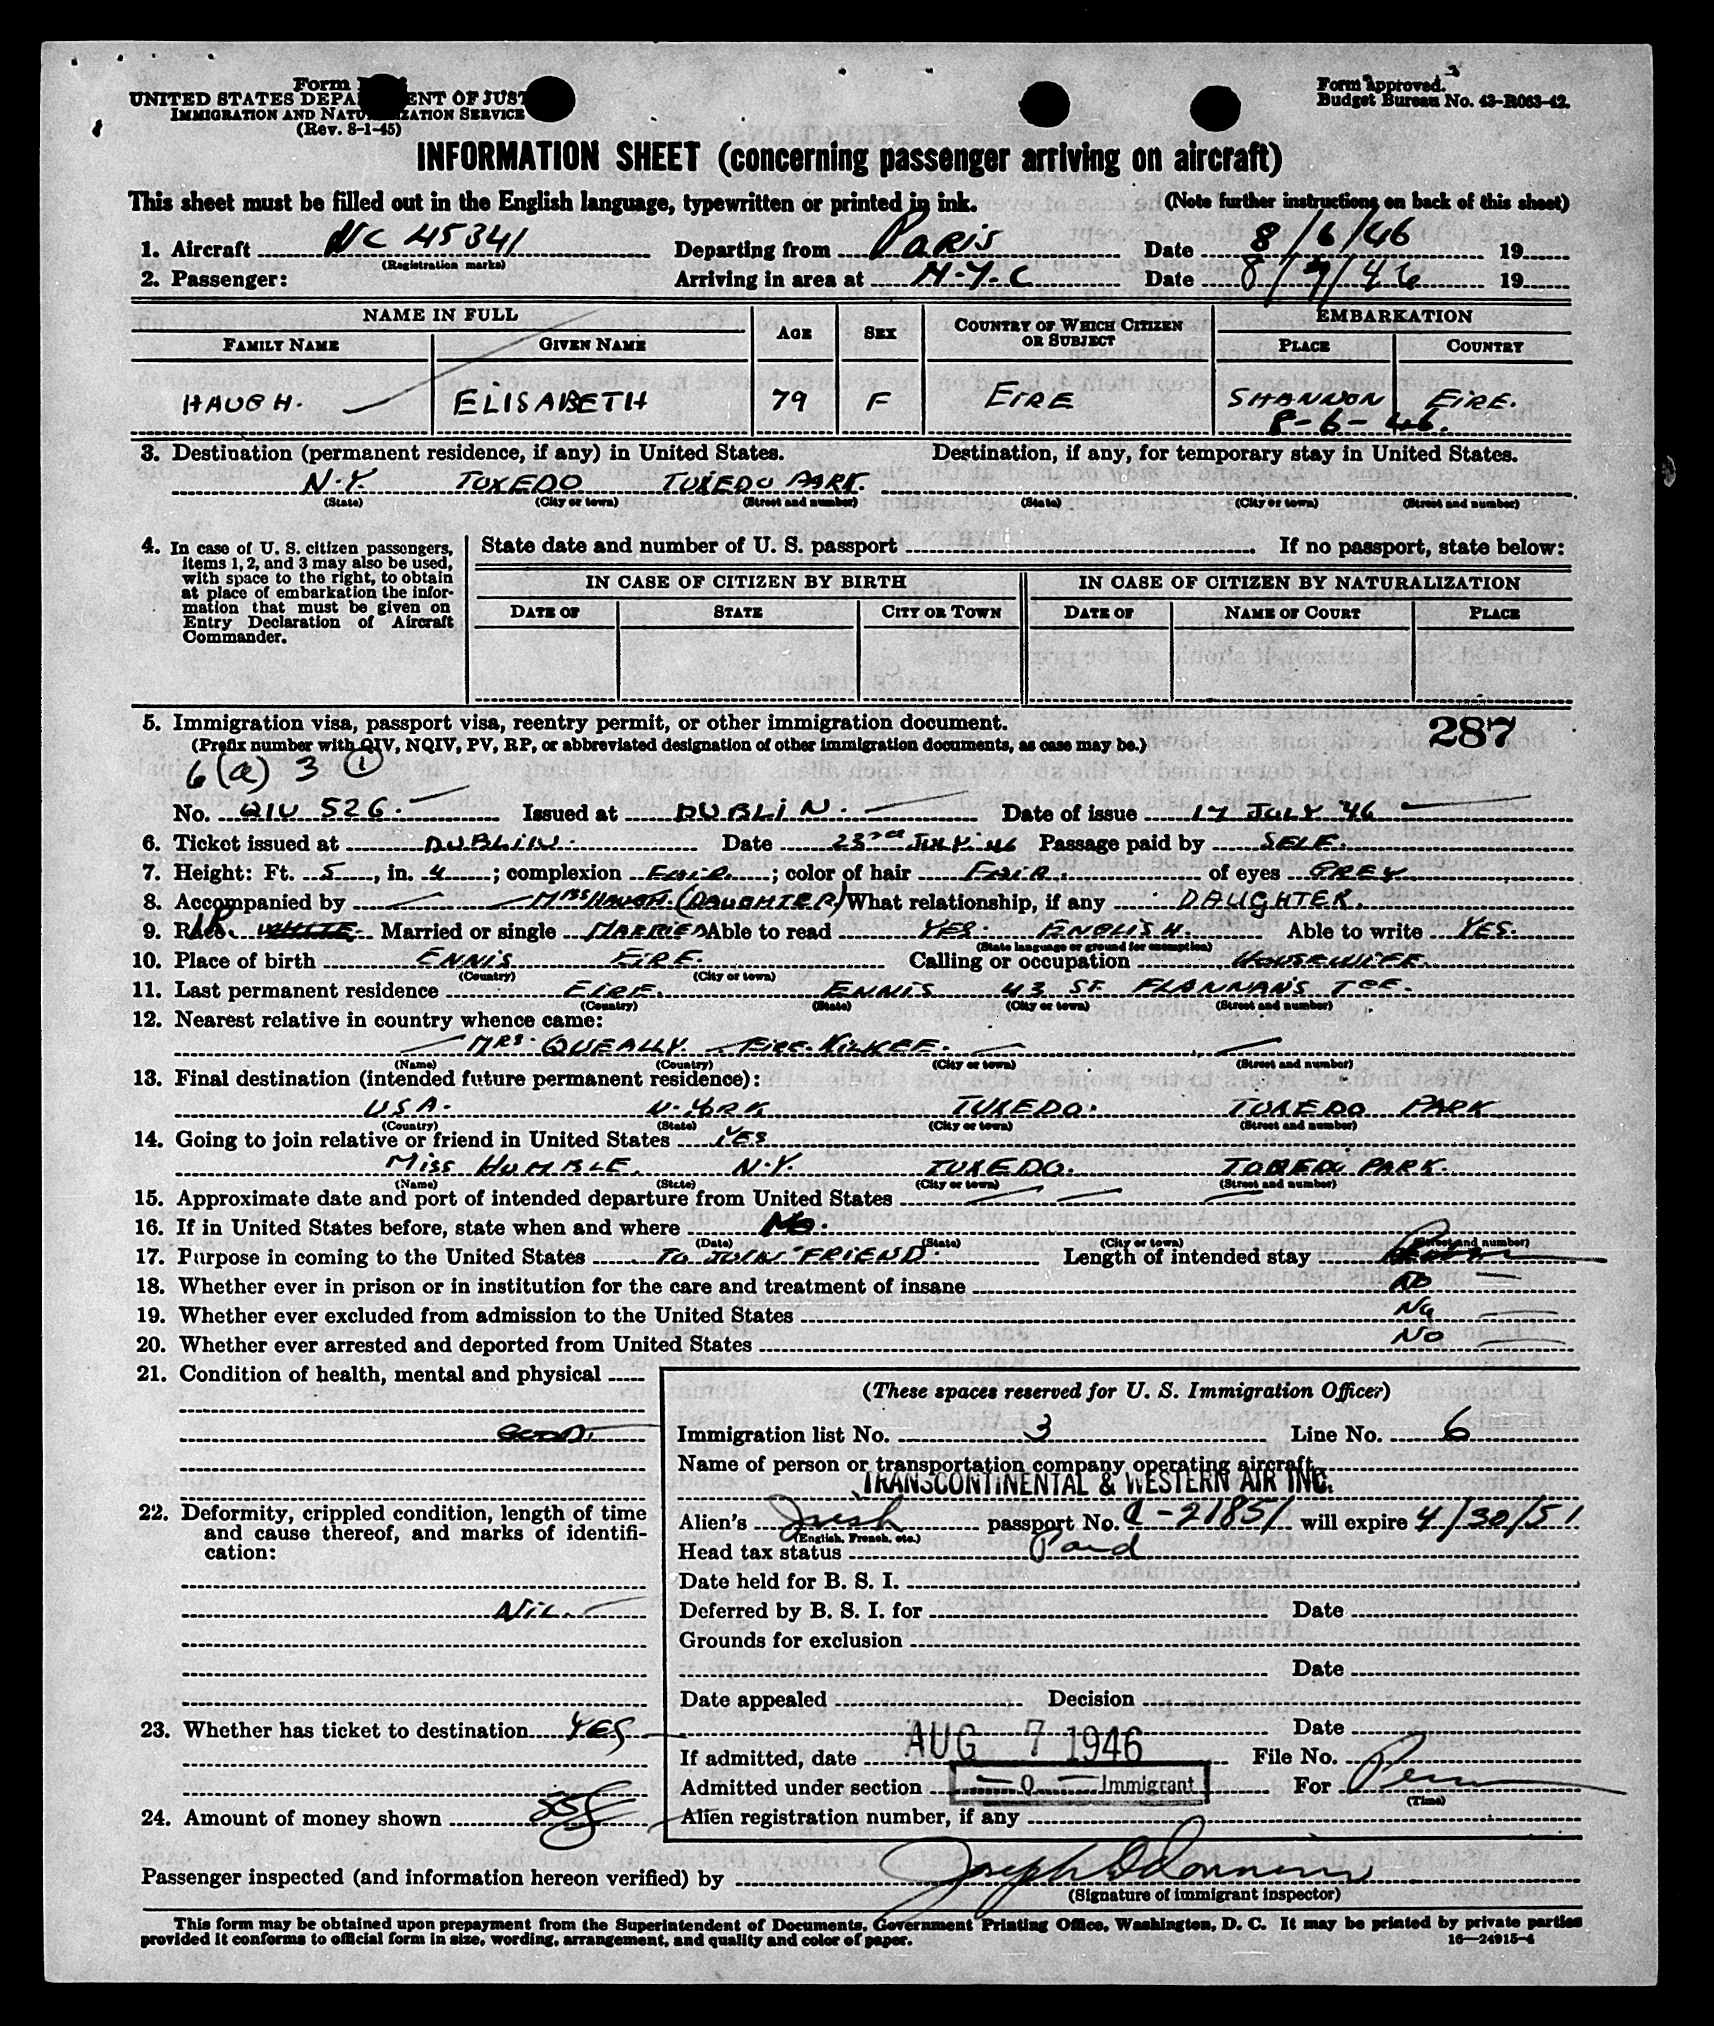 Form
UNITED STATES DEPA ENT OF JUST
IMMIGRATION AND NATU IZATION SERVICE
(Rev. 8-1-45)
Form approved.
Budget Bureau No. 43-R063-42.
INFORMATION SHEET (concerning passenger arriving on aircraft)
This sheet must be filled out in the English language, typewritten or printed in ink. (Note further instructions on back of this sheet)
1. Aircraft NC 45341 Departing from PARIS Date 8/6/46 19
(Registration marks)
2. Passenger: Arriving in area at N.Y.C Date 8/7/46 19
NAME IN FULL AGE SEX COUNTRY OF WHICH CITIZEN OR SUBJECT EMBARKATION
FAMILY NAME GIVEN NAME PLACE COUNTRY
HAUGH. ELISABETH 79 F EIRE SHANNON EIRE.
8-6-46.
3. Destination (permanent residence, if any) in United States. Destination, if any, for temporary stay in United States.
N.Y. TUXEDO TUXEDO PARK.
(State) (City or town) (Street and number) (State) (City or town) (Street and number)
4. In case of U. S. citizen passengers, items 1, 2, and 3 may also be used, with space to the right, to obtain at place of embarkation the information that must be given on Entry Declaration of Aircraft Commander.
State date and number of U. S. passport . If no passport, state below:
IN CASE OF CITIZEN BY BIRTH IN CASE OF CITIZEN BY NATURALIZATION
DATE OF STATE CITY OR TOWN DATE OF NAME OF COURT PLACE
5. Immigration visa, passport visa, reentry permit, or other immigration document. 287
(Prefix number with QIV, NQIV, PV, RP, or abbreviated designation of other immigration documents, as case may be.)
6 (a) 3 1
No. QIV 526. Issued at DUBLIN. Date of issue 17 JULY 46
6. Ticket issued at DUBLIN. Date 23rd JULY 46 Passage paid by SELF.
7. Height: Ft. 5, in. 4; complexion FAIR; color of hair FAIR. of eyes GREY
8. Accompanied by MRS HAUGH. (DAUGHTER) What relationship, if any DAUGHTER.
9. Race WHITE Married or single MARRIED Able to read YES. ENGLISH. Able to write YES.
(State language or ground for exemption)
10. Place of birth ENNIS EIRE. Calling or occupation HOUSEWIFE.
(Country) (City or town)
11. Last permanent residence EIRE. ENNIS 43 ST. FLANNAN'S TCE.
(Country) (State) (City or town) (Street and number)
12. Nearest relative in country whence came:
MRS. QUEALLY. EIRE. KILKEE.
(Name) (Country) (City or town) (Street and number)
13. Final destination (intended future permanent residence):
USA. N. YORK TUXEDO. TUXEDO PARK
(Country) (State) (City or town) (Street and number)
14. Going to join relative or friend in United States YES
MISS HUMBLE. N.Y. TUXEDO. TUXEDO PARK.
(Name) (State) (City or town) (Street and number)
15. Approximate date and port of intended departure from United States
16. If in United States before, state when and where No.
(Date) (State) (City or town) (Street and number)
17. Purpose in coming to the United States TO JOIN FRIEND. Length of intended stay
18. Whether ever in prison or in institution for the care and treatment of insane NO
19. Whether ever excluded from admission to the United States NO
20. Whether ever arrested and deported from United States NO
21. Condition of health, mental and physical
GOOD.
22. Deformity, crippled condition, length of time and cause thereof, and marks of identification:
NIL.
23. Whether has ticket to destination YES
24. Amount of money shown
(These spaces reserved for U. S. Immigration Officer)
Immigration list No. 3 Line No. 6
Name of person or transportation company operating aircraft
TRANSCONTINENTAL & WESTERN AIR INC.
Alien's Irish passport No. C-21851 will expire 4/30/51
(English, French, etc.)
Head tax status Paid
Date held for B. S. I.
Deferred by B. S. I. for Date
Grounds for exclusion
Date
Date appealed Decision
Date
If admitted, date AUG 7 1946 File No.
Admitted under section Q Immigrant For Perm
(Time)
Alien registration number, if any
Passenger inspected (and information hereon verified) by
(Signature of immigrant inspector)
This form may be obtained upon prepayment from the Superintendent of Documents, Government Printing Office, Washington, D. C. It may be printed by private parties
provided it conforms to official form in size, wording, arrangement, and quality and color of paper. 16—24915-4